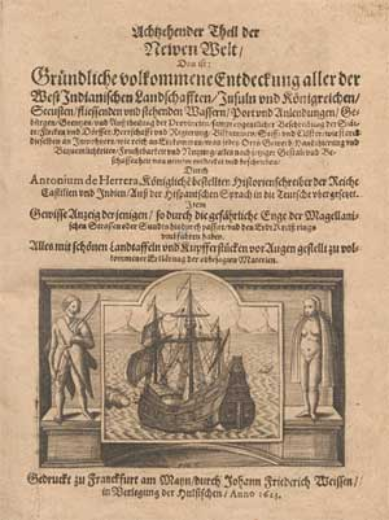 Achtzehender Theil der
Newen Welt/
Das ist:
Gründliche volkommene Entdeckung aller der
West Indianischen Landschafften/ Insuln und Königreichen/
Seecusten/ fliessenden und stehenden Wassern/ Port und Anlendungen/ Ge-
bürgen/ Grentzen/ und Außtheilung der Provincien/ sampt eygentlicher Beschreibung der Städ-
te/ Flecken und Dörffer/
Beschaffenheit von newem entdecket und beschrieben/
Durch
Antonium de Herrera, Königliche bestellten Historienschreiber der Reiche
Castilien und Indien/ Auß der Hispanischen Sprach in die Teutsche ubergesetzt.
Item
Gewisse Anzeig derjenigen/ so durch die gefährliche Enge der Magellani-
schen Strassen oder Sunds hindurch passirt/ und den Erdt Kreiß rings
umbfahren haben.
Alles mit schönen Landtaffeln und Kupfferstücken vor Augen gestellt zu vol-
kommener Erklärung der obbesagten Materien.
Gedruckt zu Franckfurt am Mayn/ durch Johann Friederich Weissen/
in Verlegung der Hulsischen/ Anno 1623.